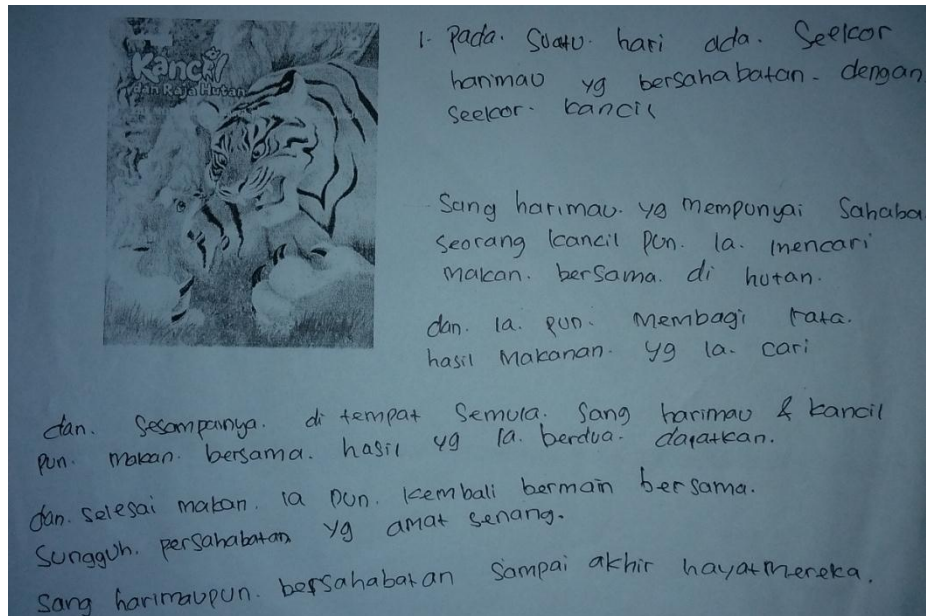 Kancil
dan Raja Hutan
1. Pada. Suatu. hari ada. Seekor
harimau yg bersahabatan. dengan
seekor. kancil
Sang harimau. yg mempunyai Sahaba
seorang kancil pun. Ia. mencari
makan. bersama. di hutan.
dan. Ia. pun. Membagi rata.
hasil Makanan. yg Ia. cari
dan. Sesampainya. di tempat Semula. Sang harimau & kancil
pun. makan. bersama. hasil yg Ia. berdua. dapatkan.
dan. selesai makan. ia pun. kembali bermain bersama.
Sungguh. persahabatan yg amat senang.
Sang harimaupun. bersahabatan sampai akhir hayat mereka.